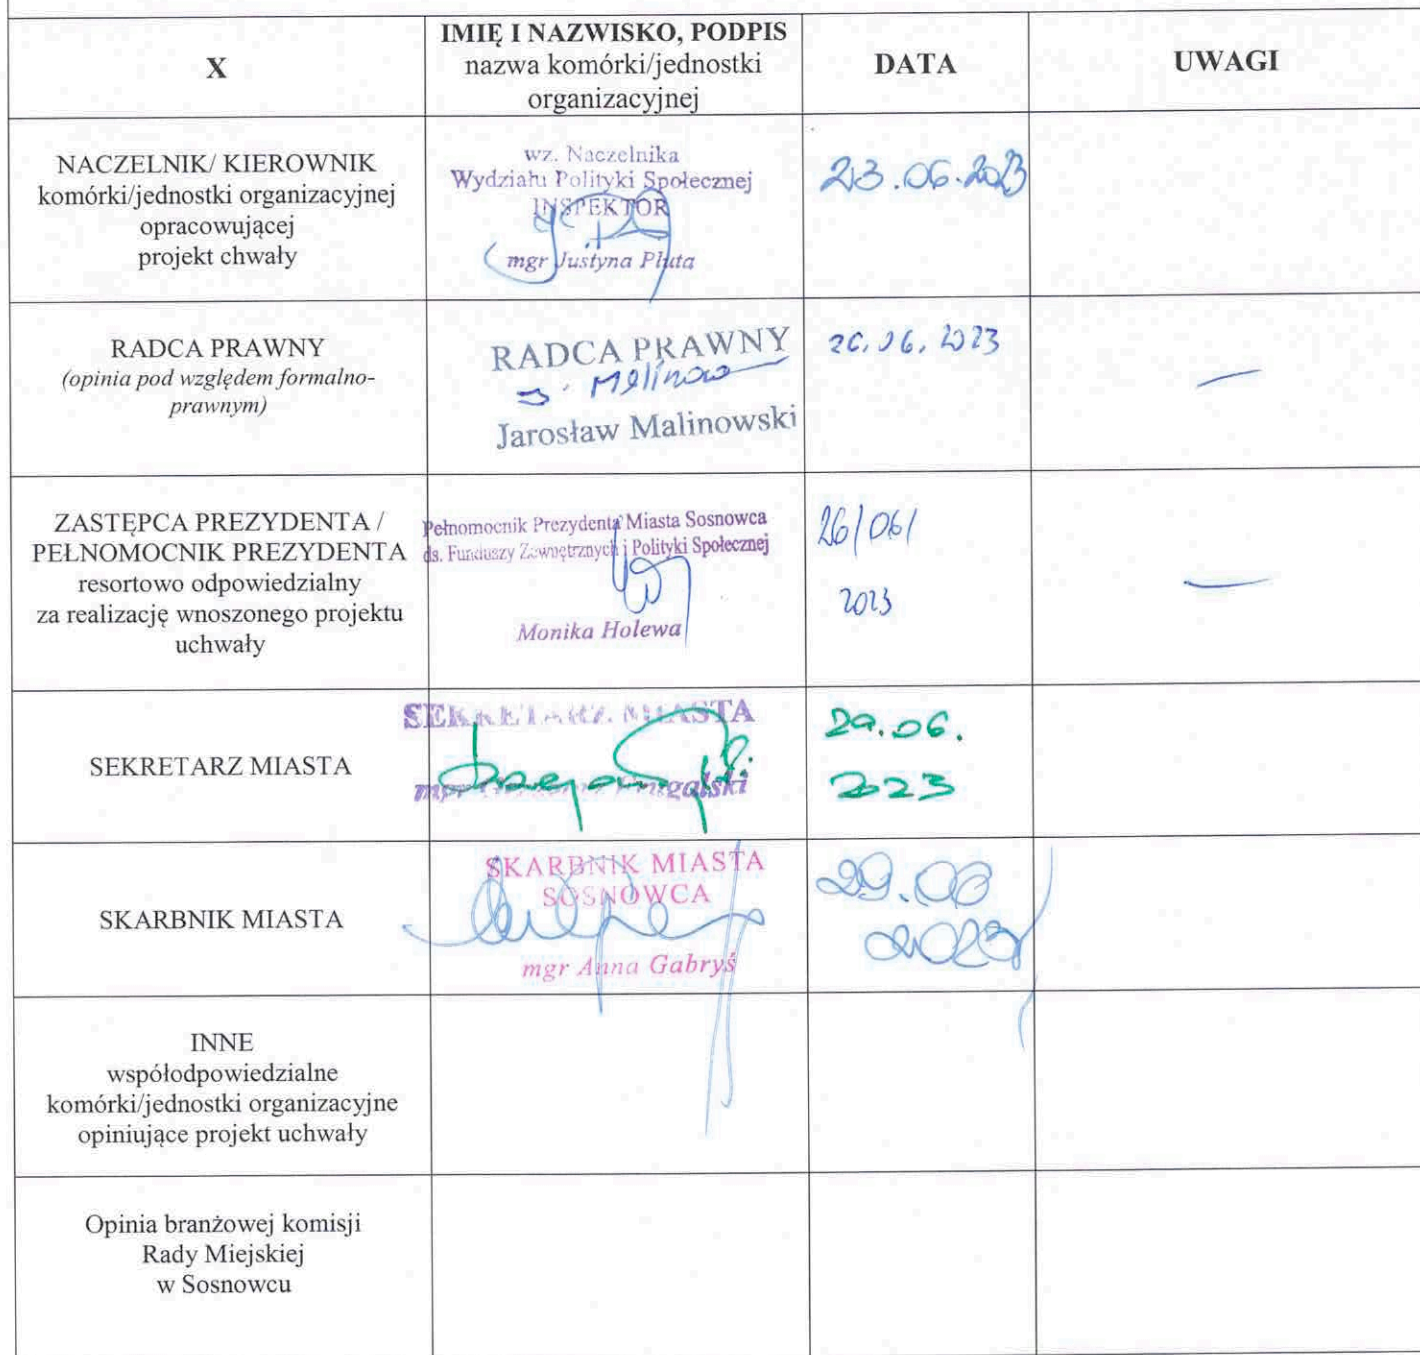 X
IMIĘ I NAZWISKO, PODPIS
nazwa komórki/jednostki
organizacyjnej
DATA
UWAGI
NACZELNIK/ KIEROWNIK
komórki/jednostki organizacyjnej
opracowującej
projekt chwały
wz. Naczelnika
Wydziału Polityki Społecznej
INSPEKTOR
mgr Justyna Pluta
23.06.2023
RADCA PRAWNY
(opinia pod względem formalno-
prawnym)
RADCA PRAWNY
J. Malinow
Jarosław Malinowski
26.06.2023
ZASTĘPCA PREZYDENTA /
PEŁNOMOCNIK PREZYDENTA
resortowo odpowiedzialny
za realizację wnoszonego projektu
uchwały
Pełnomocnik Prezydenta Miasta Sosnowca
ds. Funduszy Zewnętrznych i Polityki Społecznej
Monika Holewa
26/06/
2023
SEKRETARZ MIASTA
SEKRETARZ MIASTA
mgr
29.06.
2023
SKARBNIK MIASTA
SKARBNIK MIASTA
SOSNOWCA
mgr Anna Gabryś
29.06
2023
INNE
współodpowiedzialne
komórki/jednostki organizacyjne
opiniujące projekt uchwały
Opinia branżowej komisji
Rady Miejskiej
w Sosnowcu